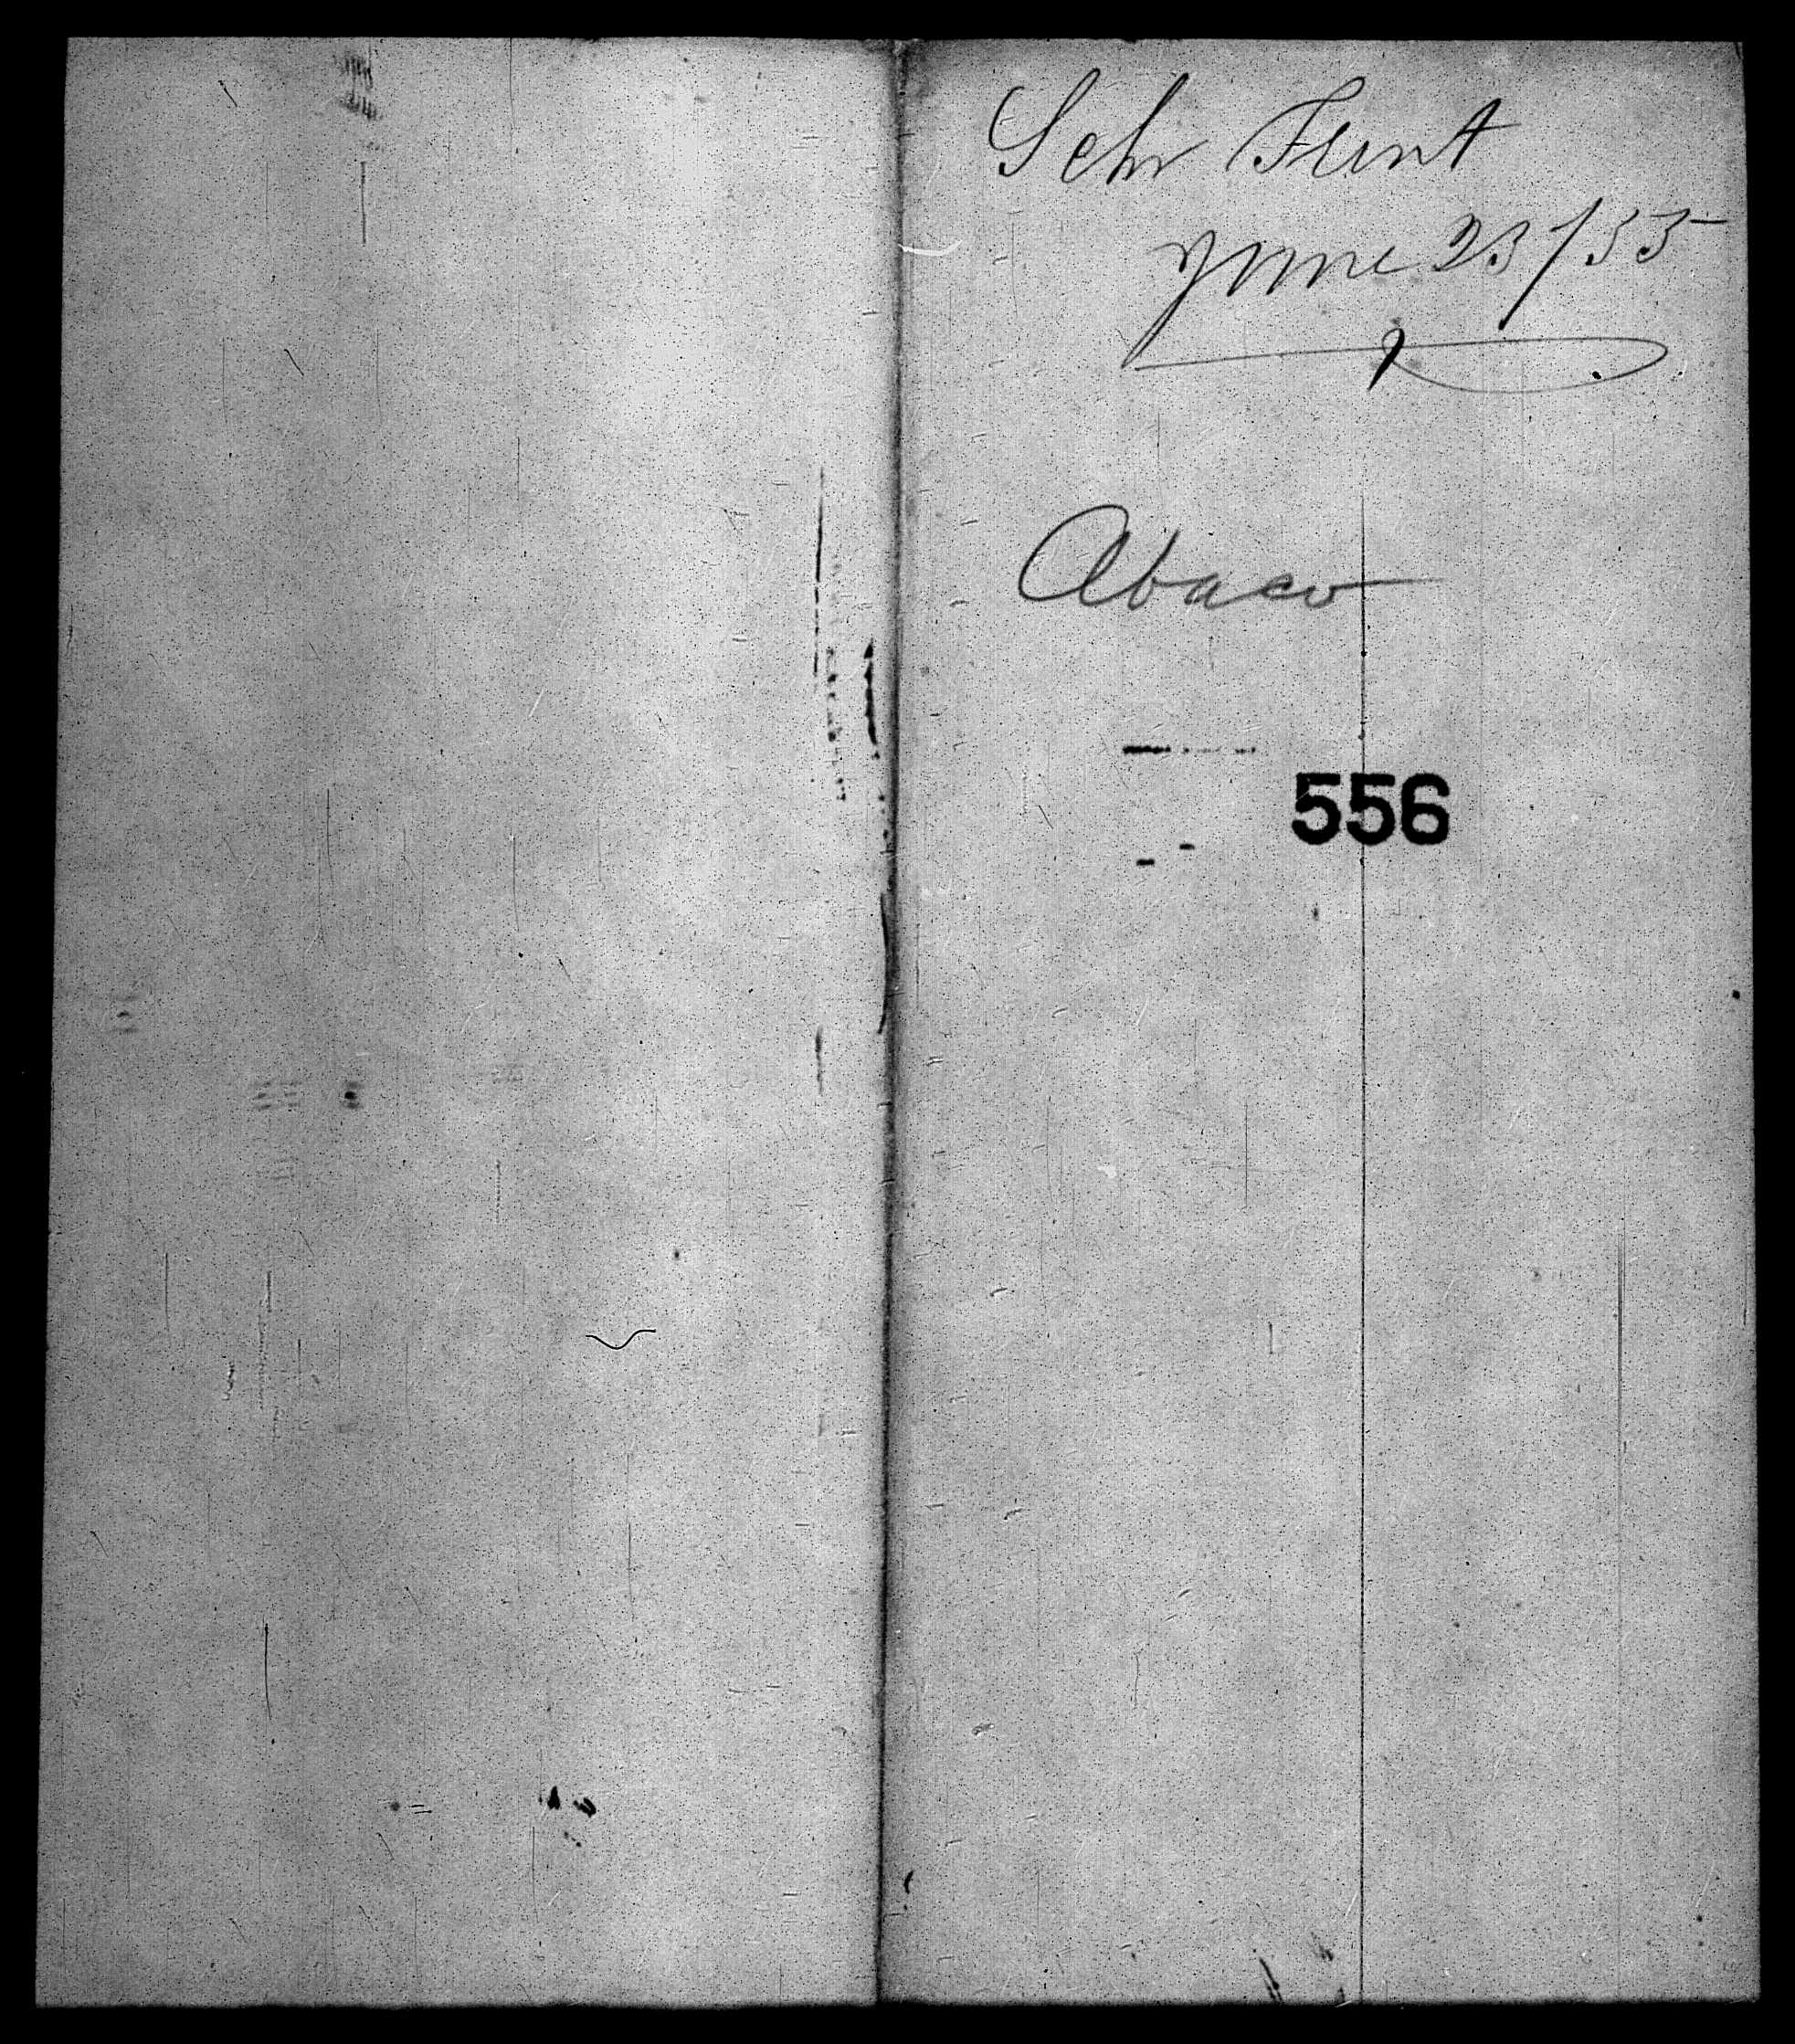 Schr Flint
June 23/55
Abaco
556